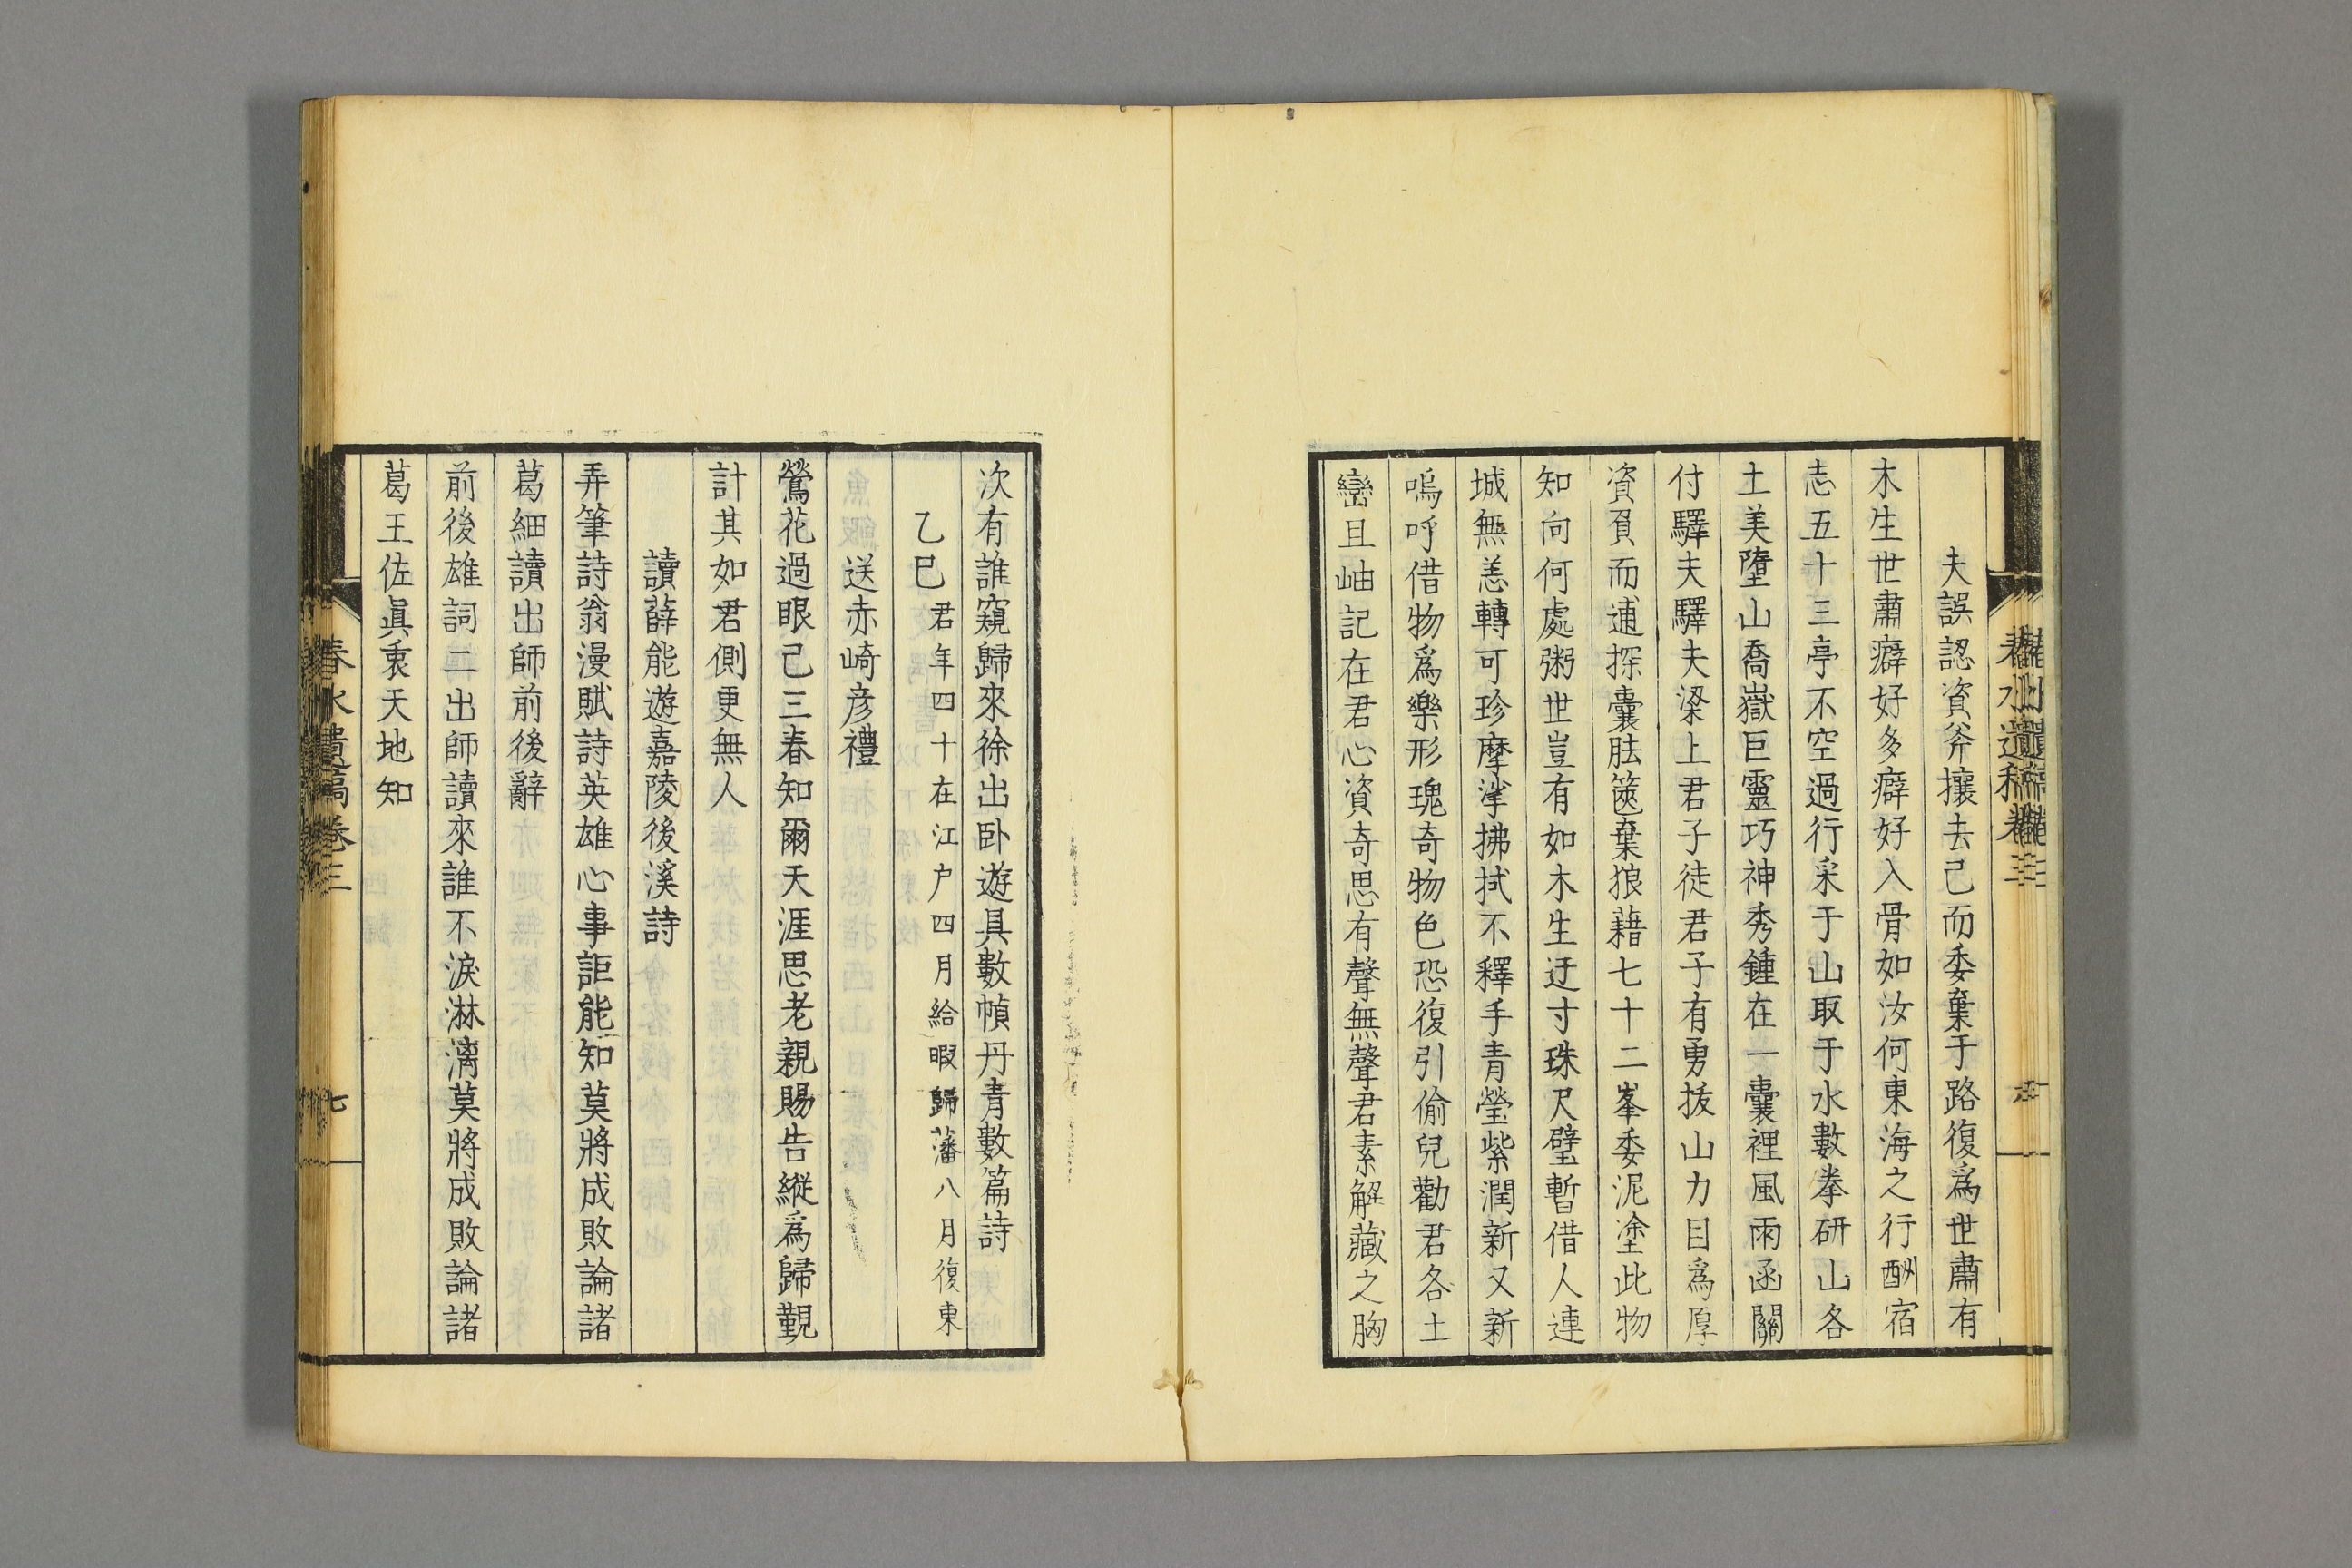 夫誤認資斧攘去己而委棄于路復爲世肅有
木生世肅癖好多癖好入骨如汝何東海之行酬宿
志五十三亭不空過行采于山取于水數拳研山各
土美墮山喬嶽巨靈巧神秀鍾在一囊裡風雨函關
付驛夫驛夫梁上君子徒君子有勇拔山力目爲厚
資負而逋探囊胠篋棄狼藉七十二峯委泥塗此物
知向何處粥世豈有如木生迂寸珠尺璧暫借人連
城無恙轉可珍摩挲拂拭不釋手青瑩紫潤新又新
嗚呼借物爲樂形瑰奇物色恐復引偷兒勸君各土
巒且岫記在君心資奇思有聲無聲君素解藏之胸
次有誰窺歸來徐出卧遊具數幀丹青數篇詩
乙巳君年四十在江户四月給暇歸藩八月復東
送赤崎彦禮
鶯花過眼己三春知爾天涯思老親賜告縱爲歸覲
計其如君側更無人
讀薛能遊嘉陵後溪詩
弄筆詩翁漫賦詩英雄心事詎能知莫將成敗論諸
葛細讀出師前後辭
前後雄詞二出師讀來誰不淚淋漓莫將成敗論諸
葛王佐眞衷天地知
春水遺稿卷三
七